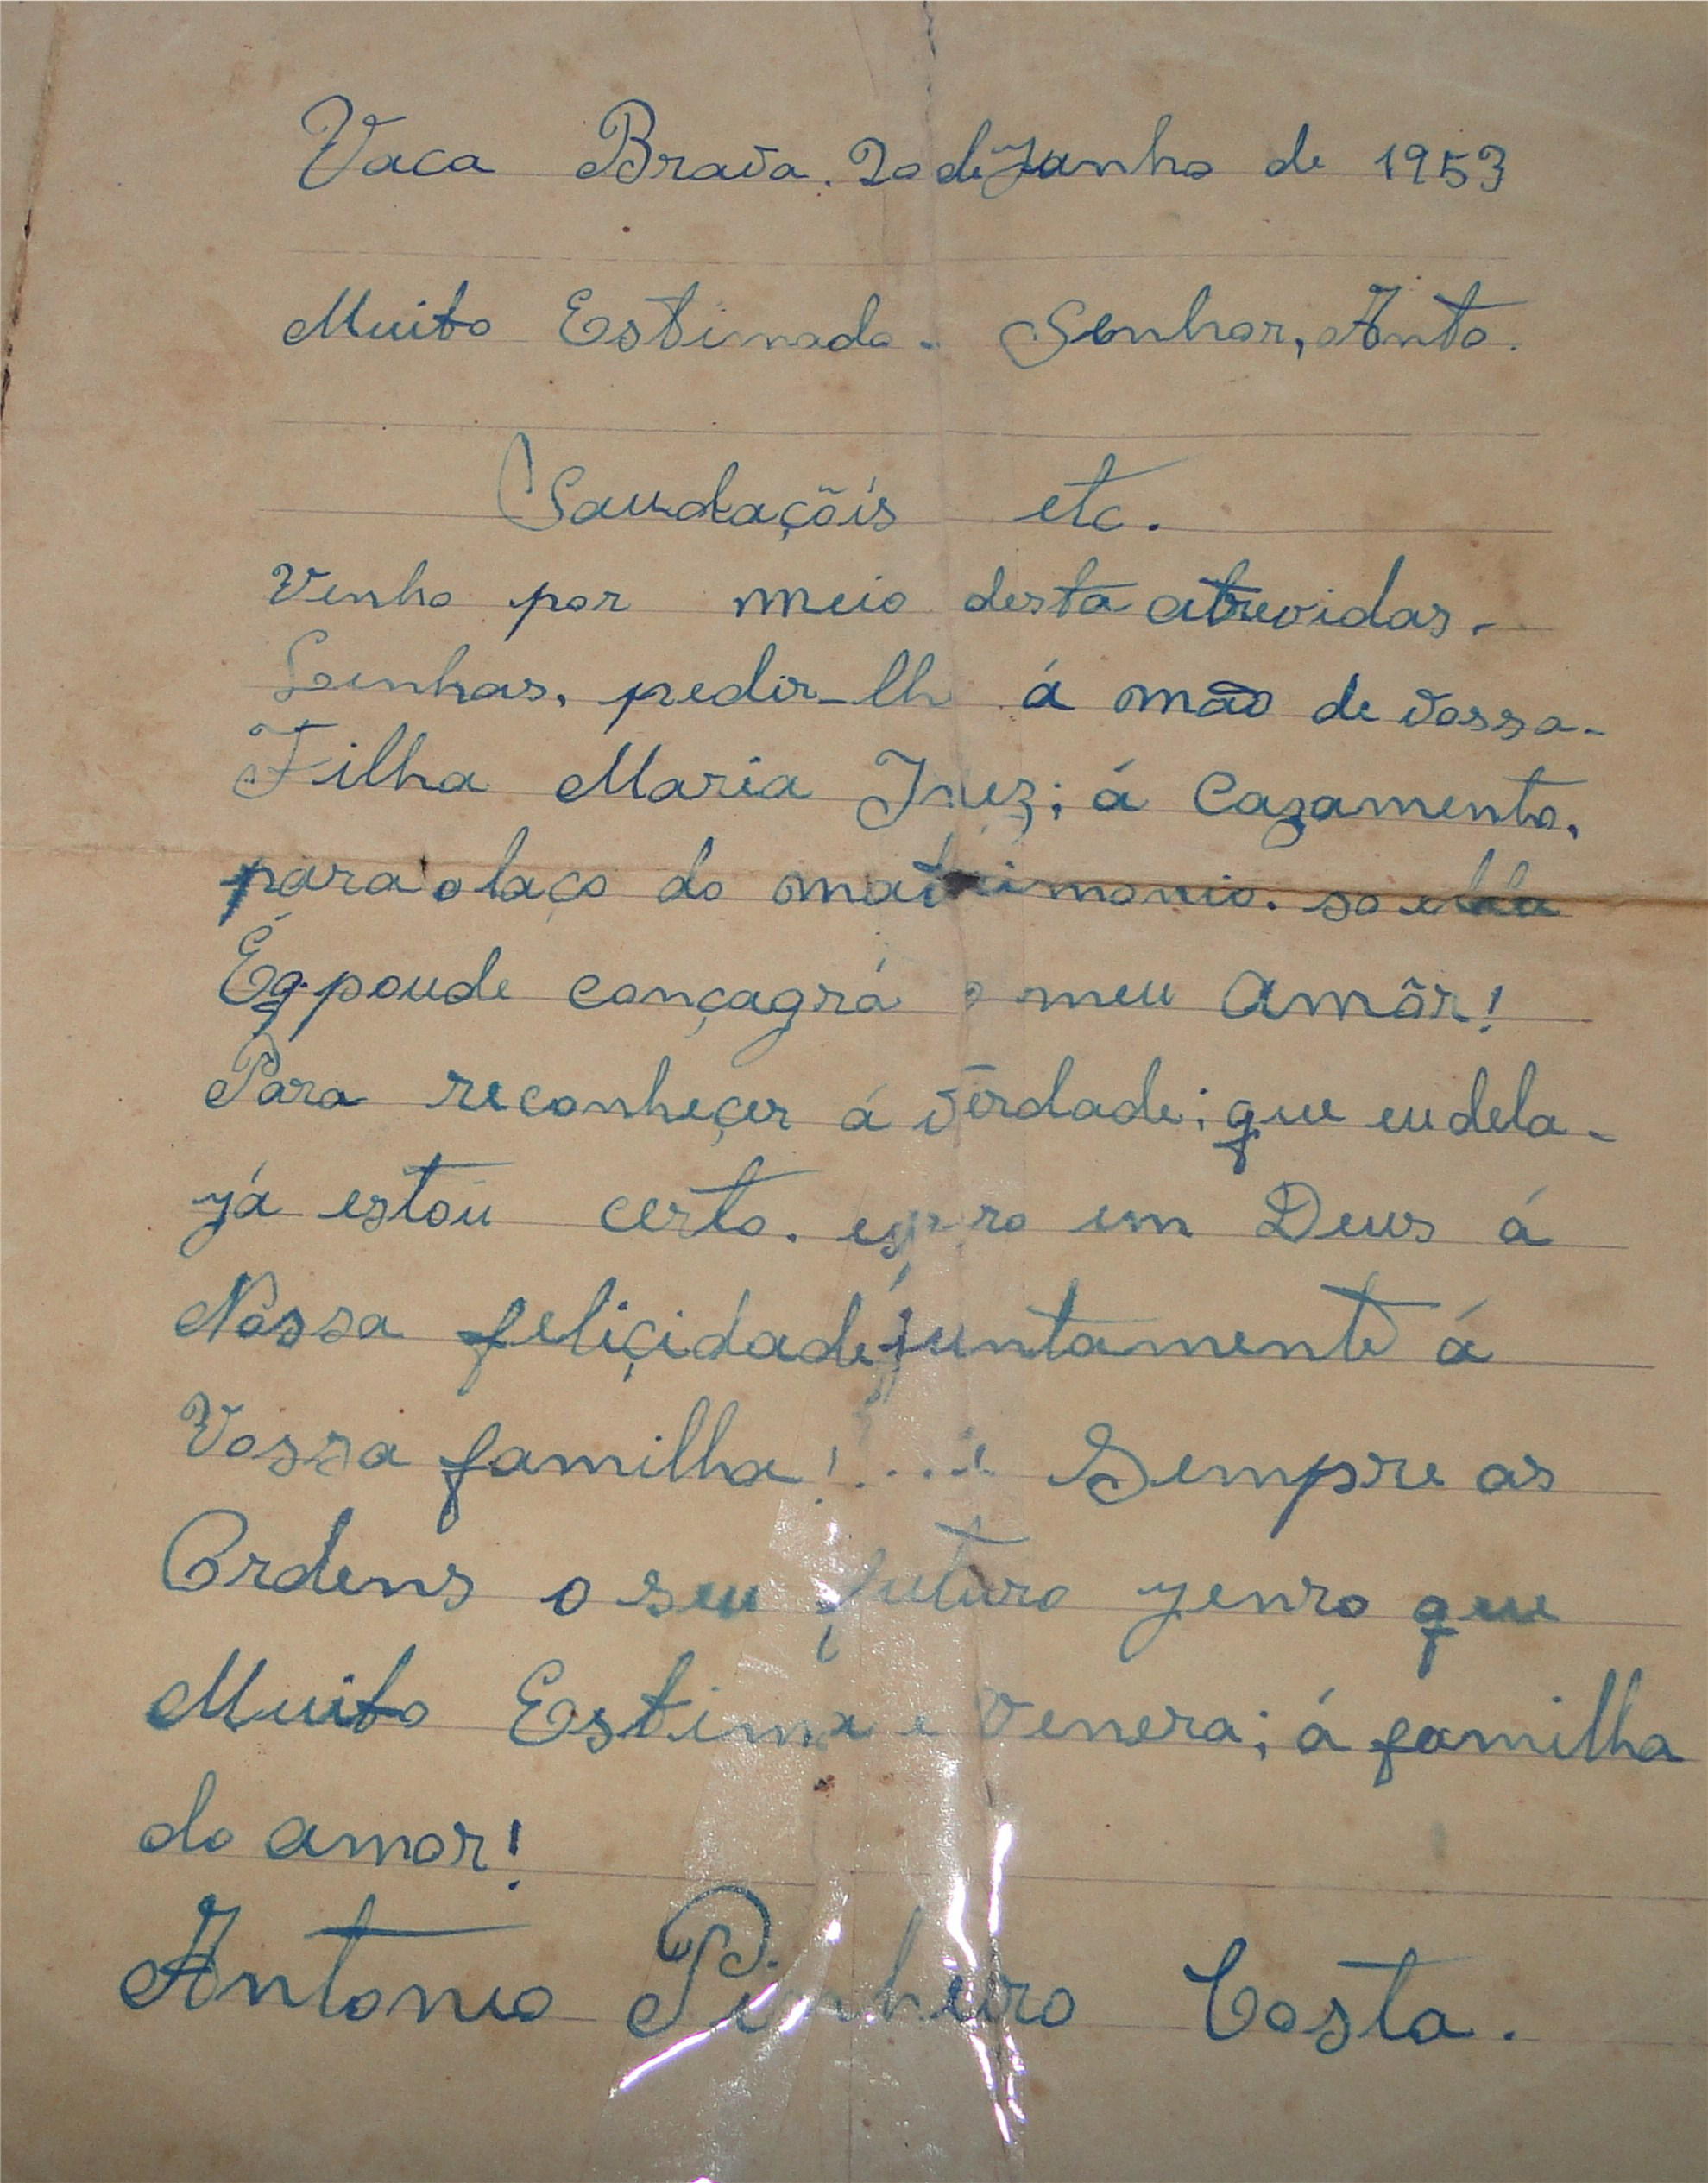 Vaca Brava. 20 de Junho de 1953
Muito Estimado - Senhor, Anto.
Saudaçõis etc.
Venho por meio desta atrevidas.
Linhas, pedir-lh á mão de vossa-
Filha Maria Inez; á Cazamento,
para o laço do matrimonio. so ella
É q. poude conçagrá o meu amôr!
Para reconheçer á verdade; que eu dela-
já estou certo. espero em Deus á
Nossa feliçidade, juntamente á
Vossa familha! ...! Sempre as
Ordens o seu futuro yenro que
Muito Estima e Venera; á familha
do amor!
Antonio Pinheiro Costa.